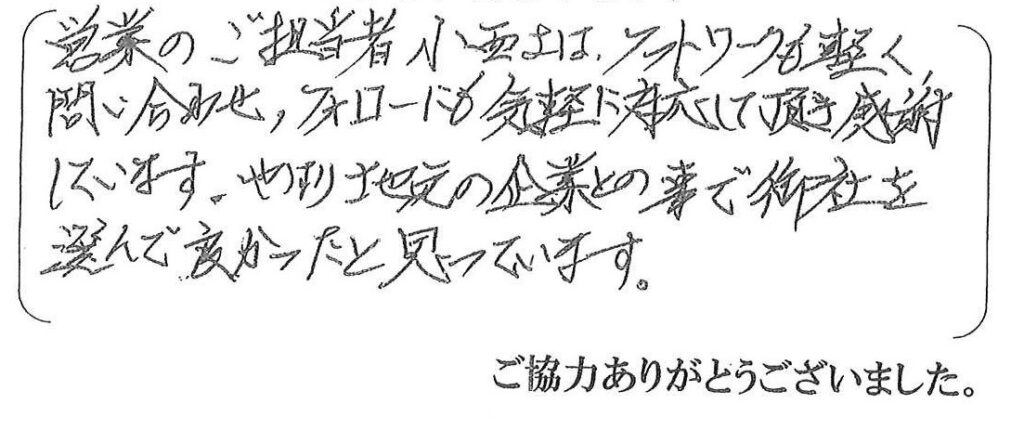 営業のご担当者小西さんは、フットワークも軽く、
問い合わせ、フォローにも気軽に対応して頂き感謝
しています。やはり地元の企業との事で御社を
選んで良かったと思っています。
ご協力ありがとうございました。